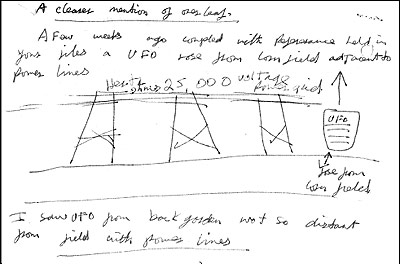 A clearer mention of overleaf.
A Few weeks ago coupled with reference held in
your files a UFO rose from corn field adjacent to
power lines
25,000 voltage
power grid
UFO
rose from
corn fields
I saw UFO from back garden not so distant
from field with power lines